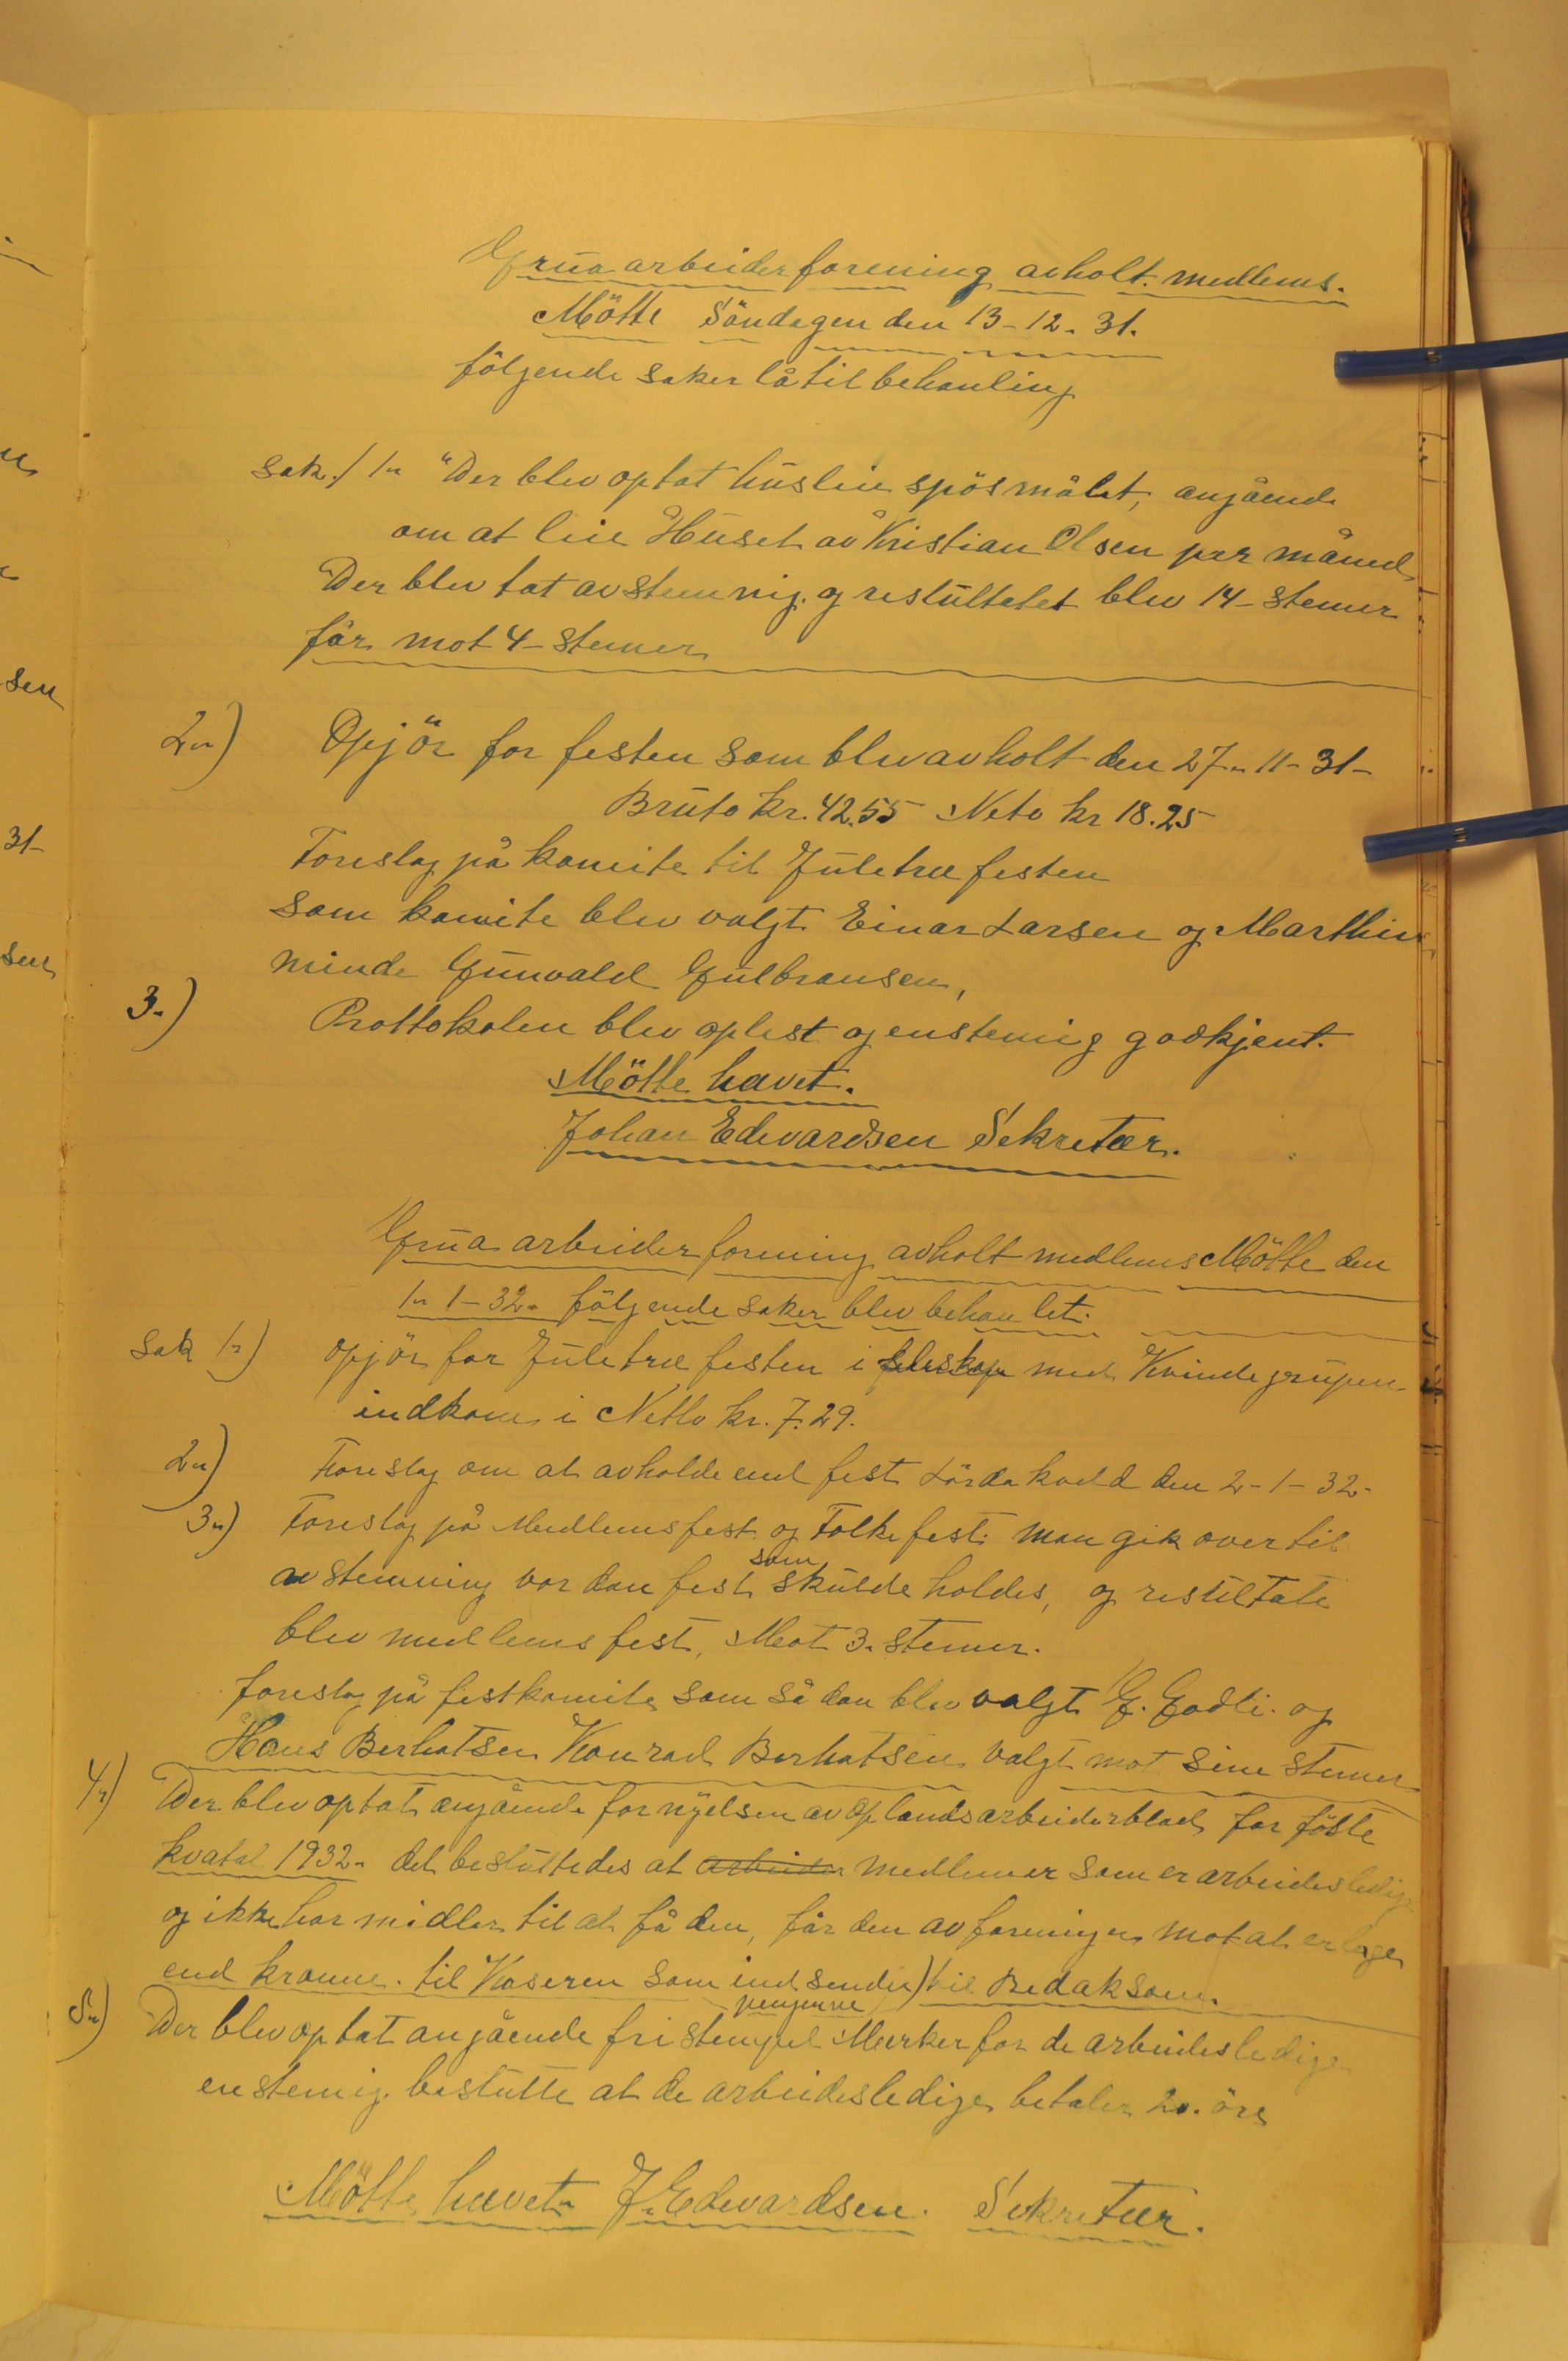 Grua arbeiderforening avholt medlems.
Mötte Söndagen den 13-12-31.
fölgende saker lå til behanling
sak./ 1. "Der blev optat huslie spösmålet, angående
om at leie Huset av Kristian Olsen per måned
Der blev tat avstemnig. og resultetet blev 14-stemer
får mot 4-stemer
2.) Opjör for festen som blev avholt den 27-11-31-
Bruto kr. 42.55 Neto kr 18.25
Foreslag på komite til Juletræ festen
som komite blev valgt Einar Larsen og Marthin
minde Gunvald Gulbransen,
3.) Prottokolen blev oplest og enstemig godkjent.
Mötte hævet.
Johan Edevardsen Sekretær.
Grua arbeider forening avholt medlems Mötte den
1-1-32. fölgende saker blev behanlet.
Sak 1.) opjör for Juletræ festen i felleskap med Kvindegrupen
indkom i Netto kr. 7.29.
2.) Foreslag om at avholde end fest Lördakveld den 2-1-32-
3.) Foreslag på Medlemsfest og Folkefest. man gik over til
avstemning vordan fest som skulde holdes, og resultate
blev medlems fest, Mot 3. stemer.
foreslag på festkomite som sådan blev valgt G. Godli. og
Hans Berhatsen Konrad Berhatsen valgt mot sine stemer
4.) Der blev optat angående fornyelsen av Oplandsarbeiderblad for fötte
kvatal 1932. det besluttedes at arbeider medlemer som er arbeidesledige
og ikke har midler til at få den, får den av foreningen mot at erlage
end kronne. til Kaseren som ind sender pengenne til Redaksom.
5.) Der blev optat angående fristempel Merker for de arbeidesledige
enstemig beslutte at de arbeidesledige betaler 20. öre
Mötte hævet. J. Edevardsen. Sekretær.